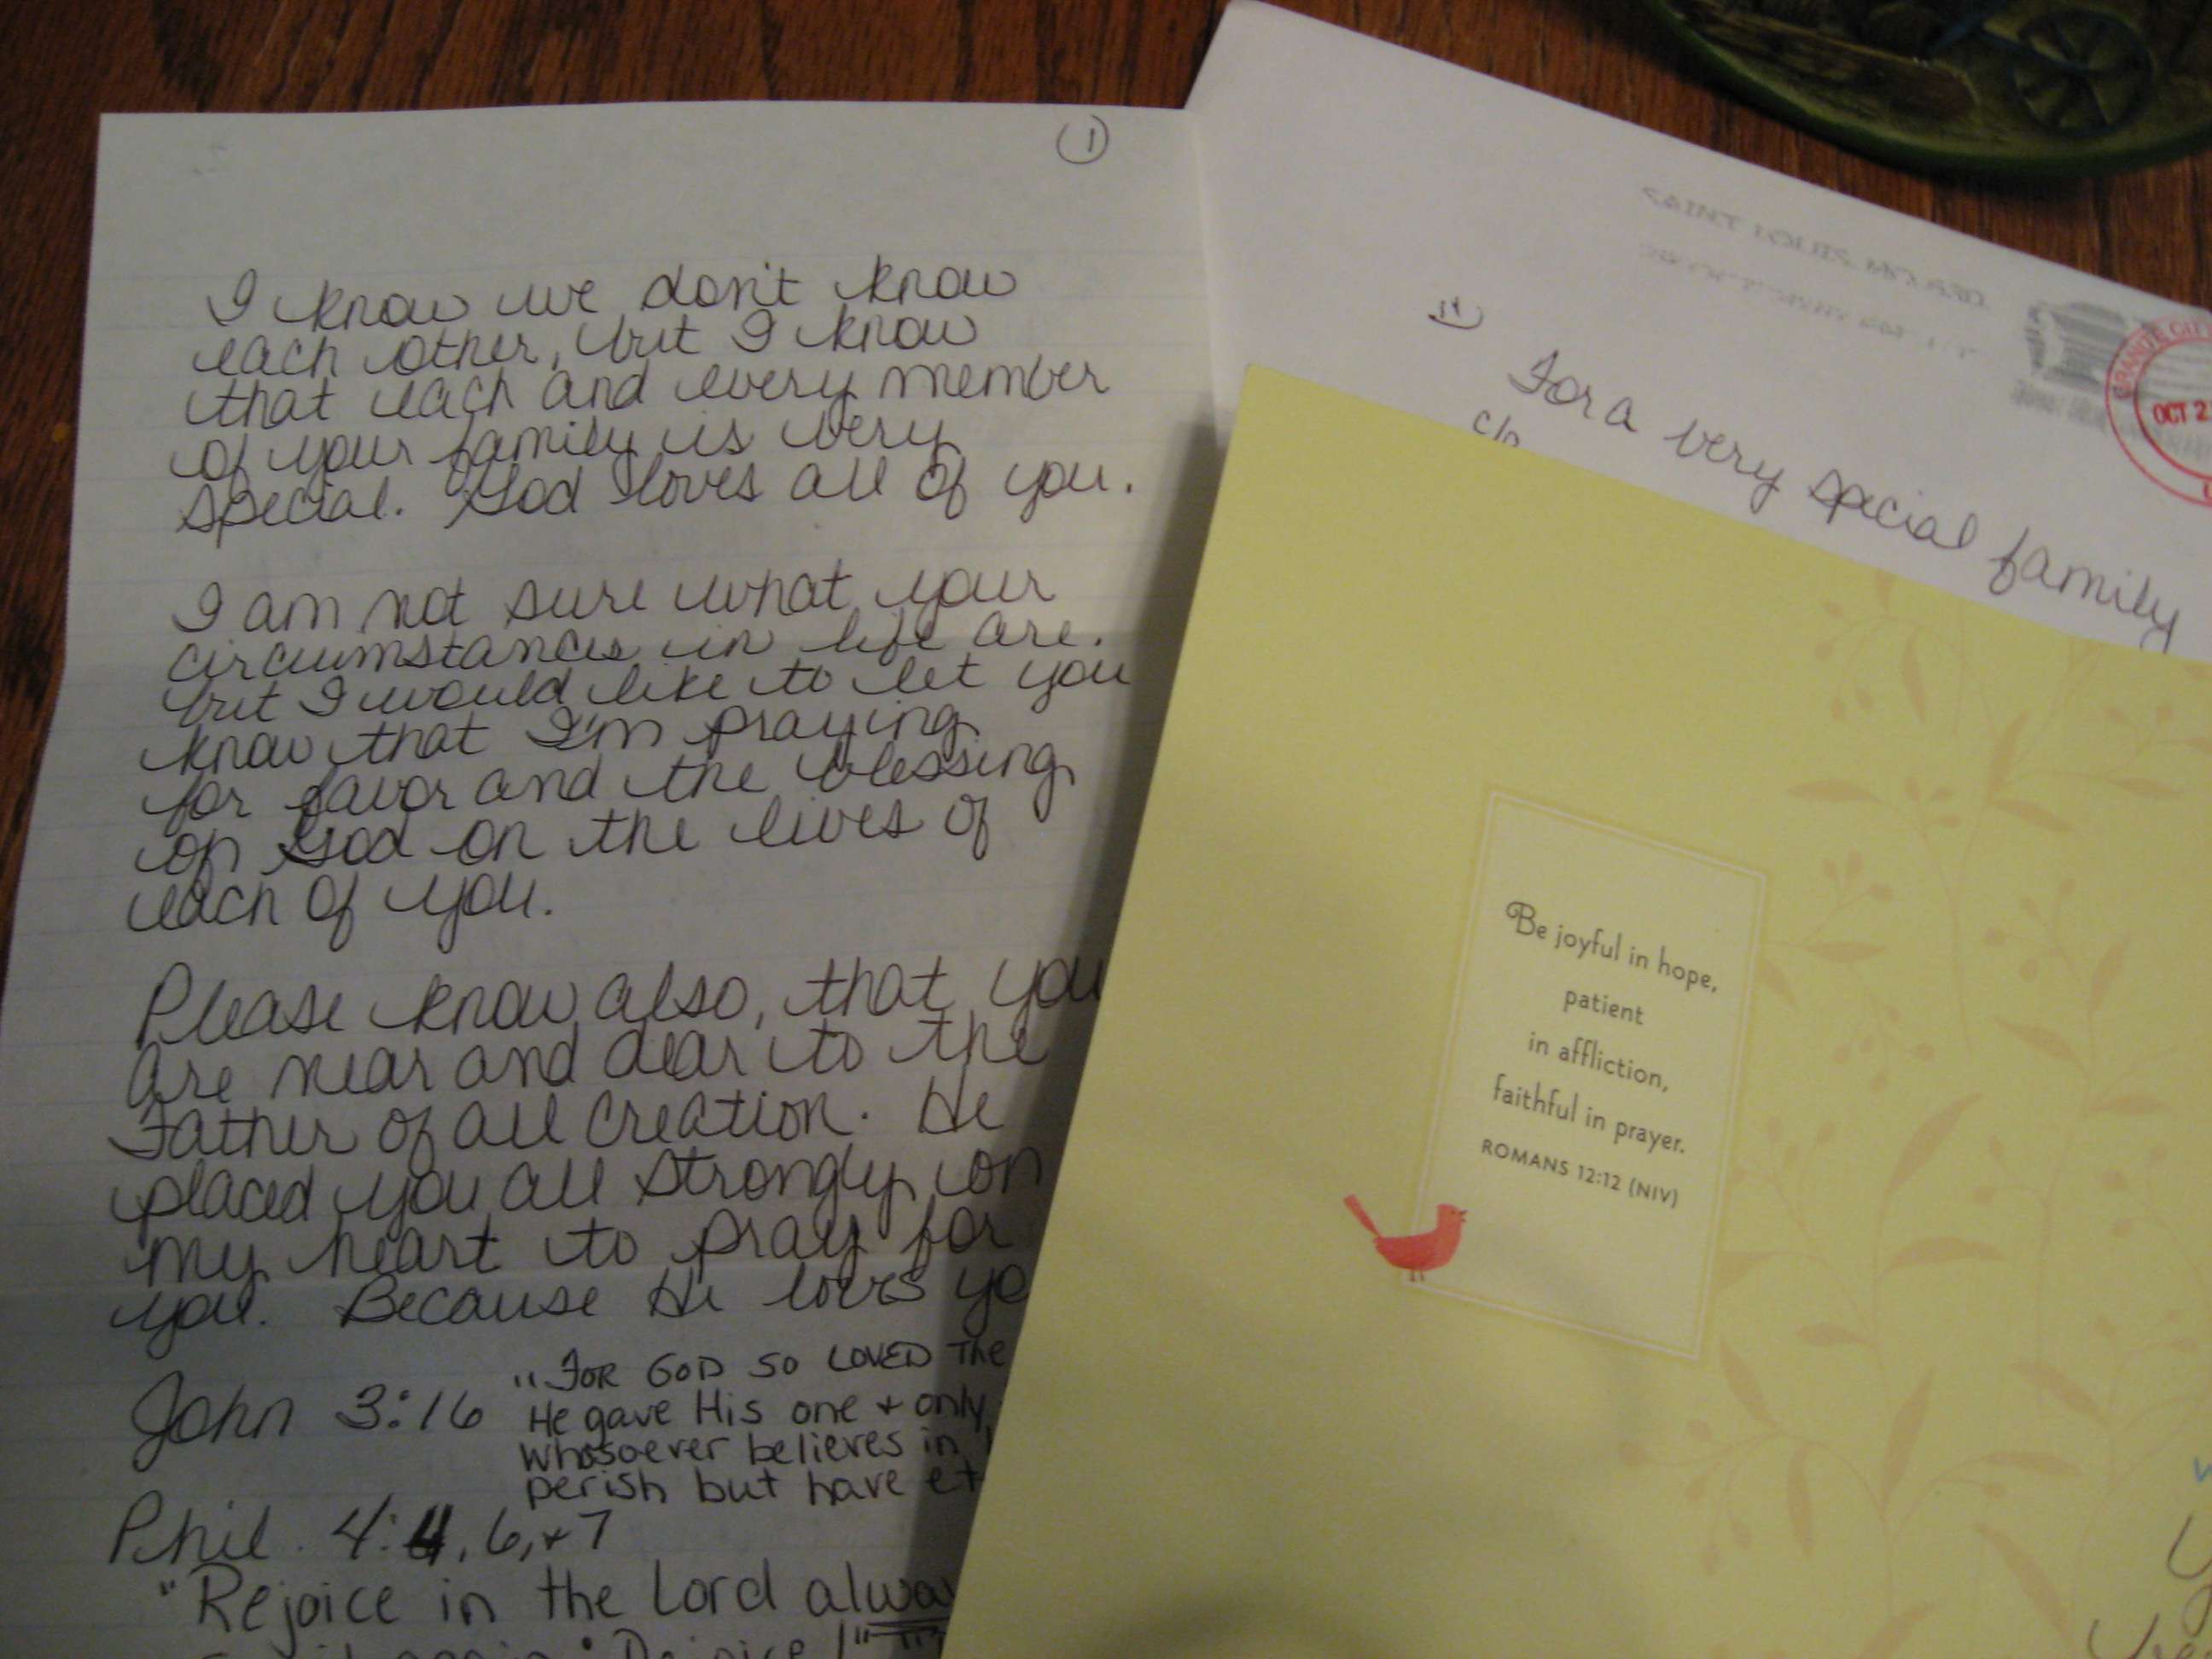 1
I know we don't know
each other, but I know
that each and every member
of your family is very
special. God loves all of you.
I am not sure what your
circumstances in life are.
but I would like to let you
know that I'm praying
for favor and the blessing
of God on the lives of
each of you.
Please know also, that you
are near and dear to the
Father of all creation. He
placed you all strongly on
my heart to pray for
you. Because He loves yo
John 3:16
"FOR GOD SO LOVED The
He gave His one + only
whosoever believes in
perish but have et
Phil. 4:4, 6, + 7
"Rejoice in the Lord alwa
again: Rejoice!"
SAINT LOUIS MO
OCT 2
For a very special family
c/o
Be joyful in hope,
patient
in affliction,
faithful in prayer.
ROMANS 12:12 (NIV)